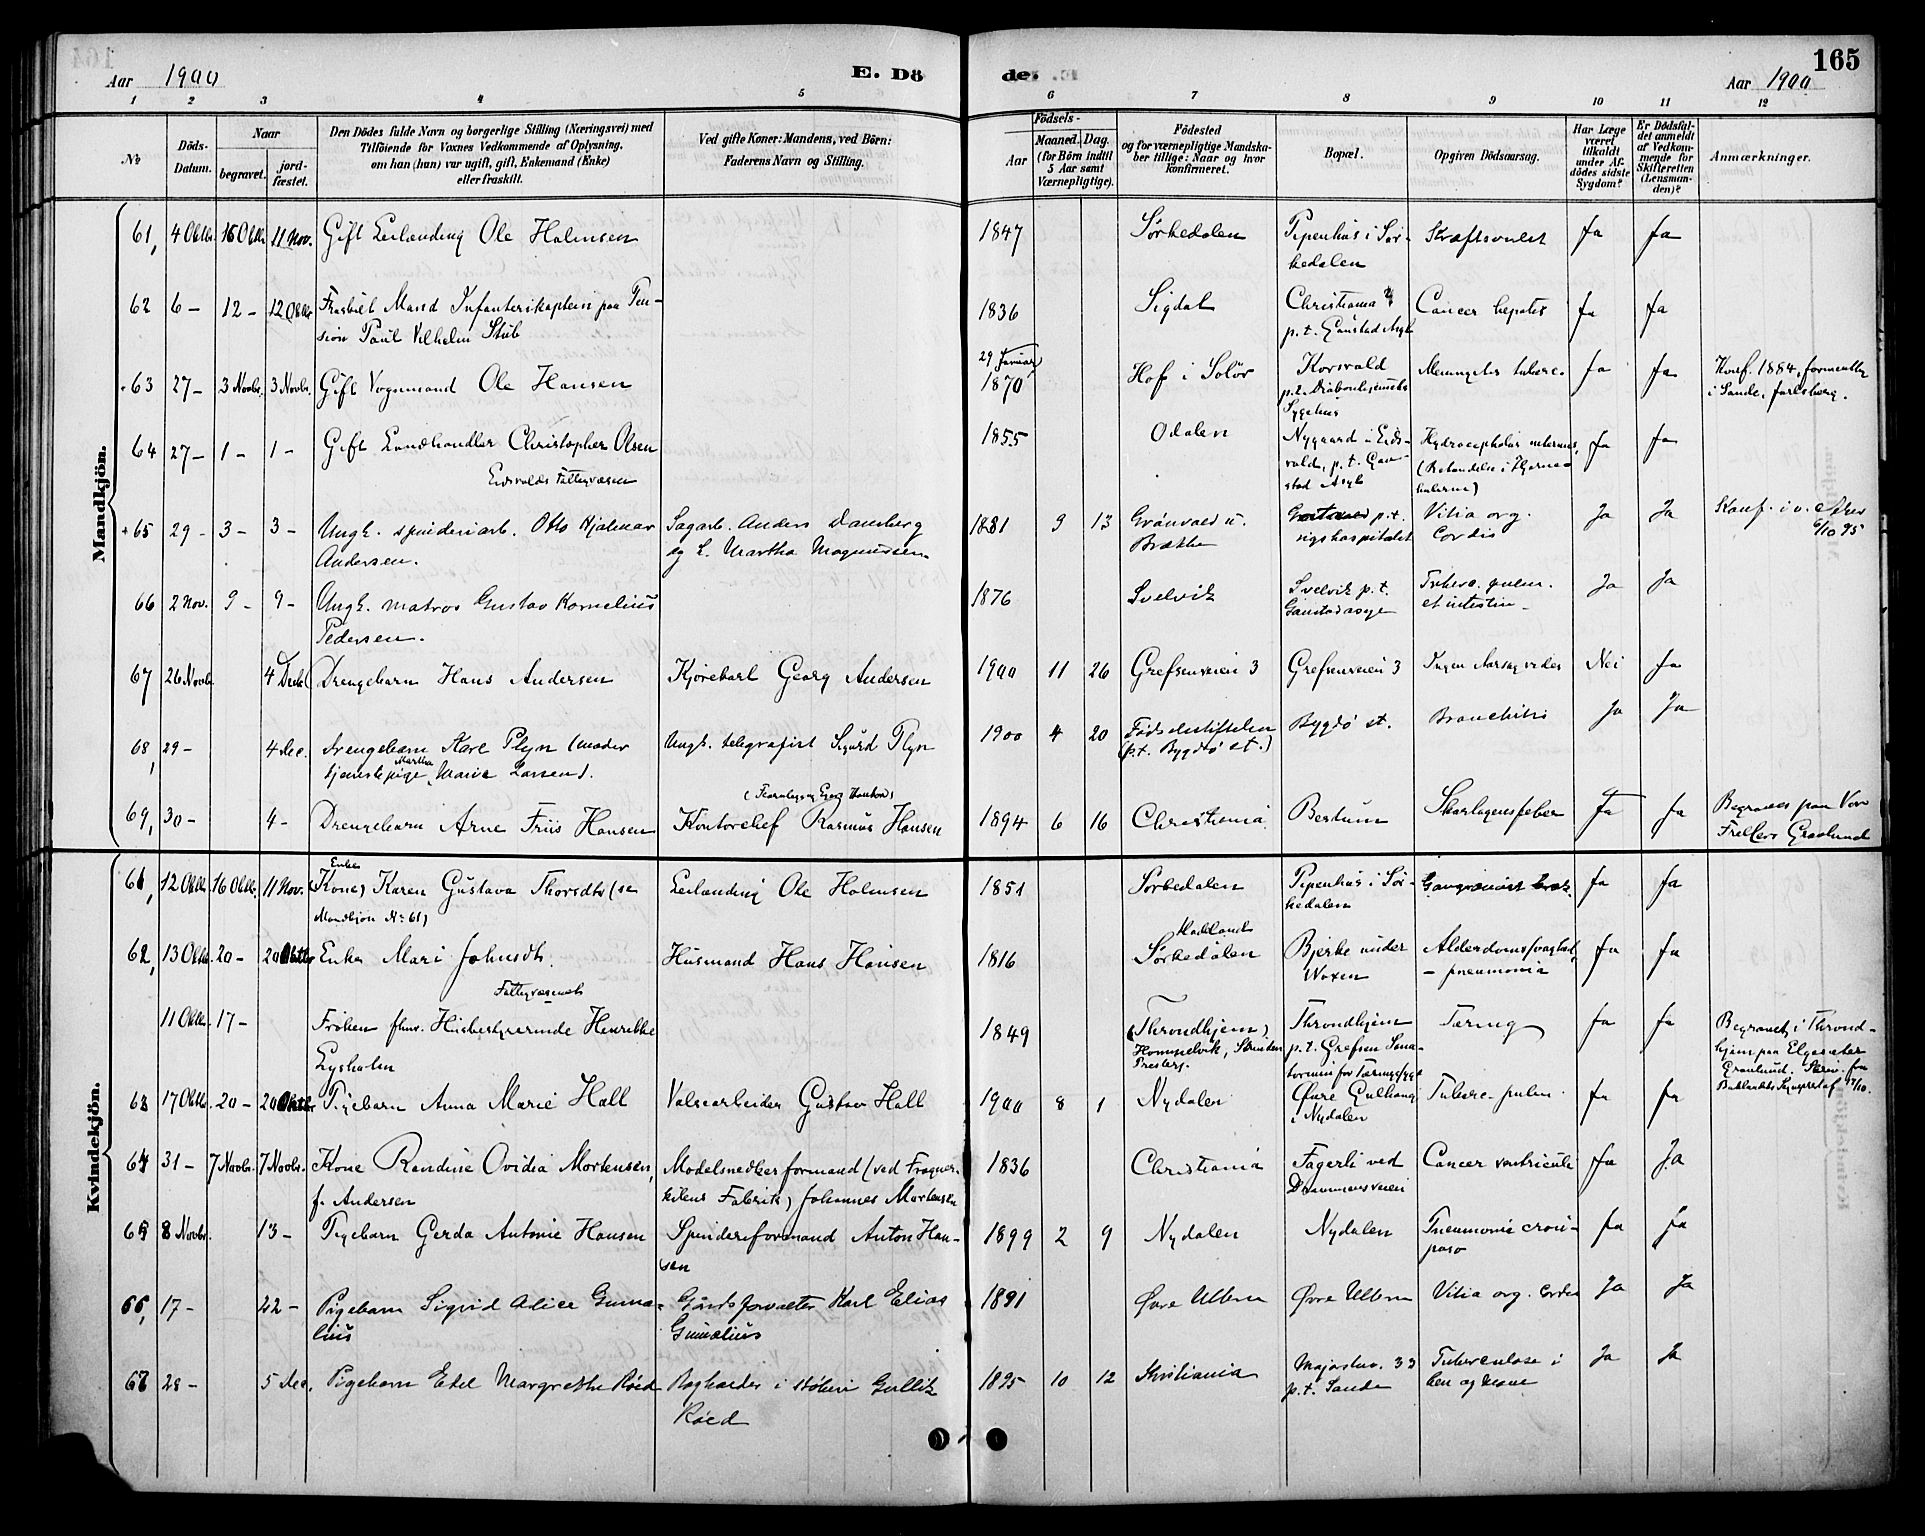 Aar 1900
E. Dö
de.
Aar 1900
165
1 2 3 4 5 6 7 8 9 10 11 12
No
Döds-
Datum.
Naar
begravet.
jord-
fæstet.
Den Dödes fulde Navn og borgerlige Stilling (Næringsvei) med
Tilföiende for Voxnes Vedkommende af Oplysning,
om han (hun) var ugift, gift, Enkemand (Enke)
eller fraskilt.
Ved gifte Koner: Mandens, ved Börn:
Faderens Navn og Stilling.
Födsels-
Aar
Maaned. Dag.
(for Börn indtil
5 Aar samt
Værnepligtige).
Födested
og for værnepligtige Mandska-
ber tillige: Naar og hvor
konfirmeret.
Bopæl.
Opgiven Dödsaarsag.
Har Læge
været
tilkaldt
under Af-
dödes sidste
Sygdom?
Er Dödsfal-
det anmeldt
af Vedkom-
mende for
Skifteretten
(Lensman-
den)?
Anmærkninger.
Mandkjön.
61, 4 Oktbr. 16 Oktbr. 11 Nov. Gift Leilænding Ole Holmsen 1847 Sørkedalen Pipenhus i Sør- Kræftsvulst Ja Ja
kedalen
62 6 - 12 - 12 Oktbr. Fraskilt Mand Infanterikaptein paa Pen- 1836 Sigdal Christiania Cancer hepatis Ja Ja
sion Paul Vilhelm Stub p.t. Gaustad Asyl
63 27 - 3 Novbr. 3 Novbr. Gift Vognmand Ole Hansen 29 Januar 1870 Hof i Solør Korsvold Meningitis tuberc. Ja Ja Konf. 1884, formentlig
p.t. Diakonhjemmets i Sande, Jarlsberg.
Sygehus
64 27 - 1 - 1 - Gift Landhandler Christopher Olsen 1855 Odalen Nygaard i Eids- Hydrocephalus internus Ja Ja
Eidsvolds Fattigvæsen vold, p.t. Gau-
stad Asyl
65 29 - 3 - 3 - Ungk. spinderiarb. Otto Hjalmar Sagarb. Anders Damberg 1881 9 13 Grønvold u. p.t. Vitia org. Ja Ja Konf. i v. Aker
Andersen. og h. Martha Magnussen Brække rigshospitalet Cordis 6/10 95
66 2 Nov. 9 - 9 - Ungk. matros Gustav Kornelius 1876 Svelvik Svelvik p.t. Tuberc. pulm. Ja Ja
Pedersen. Gaustad asyl et intestin -
67 26 Novbr. 4 Decbr. Drengebarn Hans Andersen Kjørekarl Georg Andersen 1900 11 26 Grefsenveien 3 Grefsenveien 3 Ingen Aarsag vides Nei Ja
68, 29 - 4 Dec. Drengebarn Kare Plyn (moder Ungk. telegrafist Sigurd Plyn 1900 4 20 Fødselsstiftelsen Bygdø st. Bronchitis Ja Ja
tjenestepige Martha Marie Larsen). (p.t. Bygdø st.)
69, 30 - 4 - Drengebarn Arne Friis Hansen Kontorchef Rasmus Hansen 1894 6 16 Christiania Bestum Skarlagensfeber Ja Ja Begraves paa Vor
Frelsers Gravlund
Kvindekjön.
61, 12 Oktbr. 16 Oktbr. 11 Nov. Enke (Kone) Karen Gustava Thorsdtr (se Leilænding Ole Holmsen 1851 Sørkedalen Pipenhus i Sør- Ja Ja
Mandkjøn No 61) kedalen
62, 13 Oktbr. 20 - 20 Oktbr Enke Mari Johnsdtr. Husmand Hans Hansen 1816 Sørkedalen Bjerke under Alderdomssvaghed, Ja Ja
Fattigvæsenets Voxen - pneumonia
11 Oktbr. 17 - Frøken fhv. Husbestyrerinde Henrikke 1849 (Throndhjem) Throndhjem Tæring Ja Ja Begravet i Thrond-
Lysholm Hommelvik, Strinden p.t. Grefsen Sana- hjem paa Elgeseter
Præstegj. torium for Tæringssyge Gravlund.
63 17 Oktbr. 20 - 20 Oktbr Pigebarn Anna Marie Hall Valsearbeider Gustav Hall 1900 8 1 Nydalen Øvre Gulhaug Tuberc. pulm. Ja Ja
i Nydalen
64 31 - 7 Novbr. 7 Novbr. Kone Randine Ovidia Mortensen, Modelsnedkerformand (ved Frogner- 1836 Christiania Fagerli ved Cancer ventriculi Ja Ja
f. Andersen kilens Fabrik) Johannes Mortensen Drammensveien
65 8 Novbr. 13 - Pigebarn Gerda Antonie Hansen Spinderiformand Anton Han- 1899 2 9 Nydalen Nydalen Pneumonia crou- Ja Ja
sen posa
66, 17 - 22 - Pigebarn Sigrid Alice Guma- Gårdsforvalter Karl Elias 1891 Øvre Ullern Øvre Ullern Vitia org. cordis Ja Ja
lius Gumælius
67 28 - 5 Dec. Pigebarn Edel Margrethe Röed Bogholder i Gullik 1895 10 12 Kristiania Majorstuv. 33 Tuberculose i Ja Ja
Röed p.t. Sande ben og mave